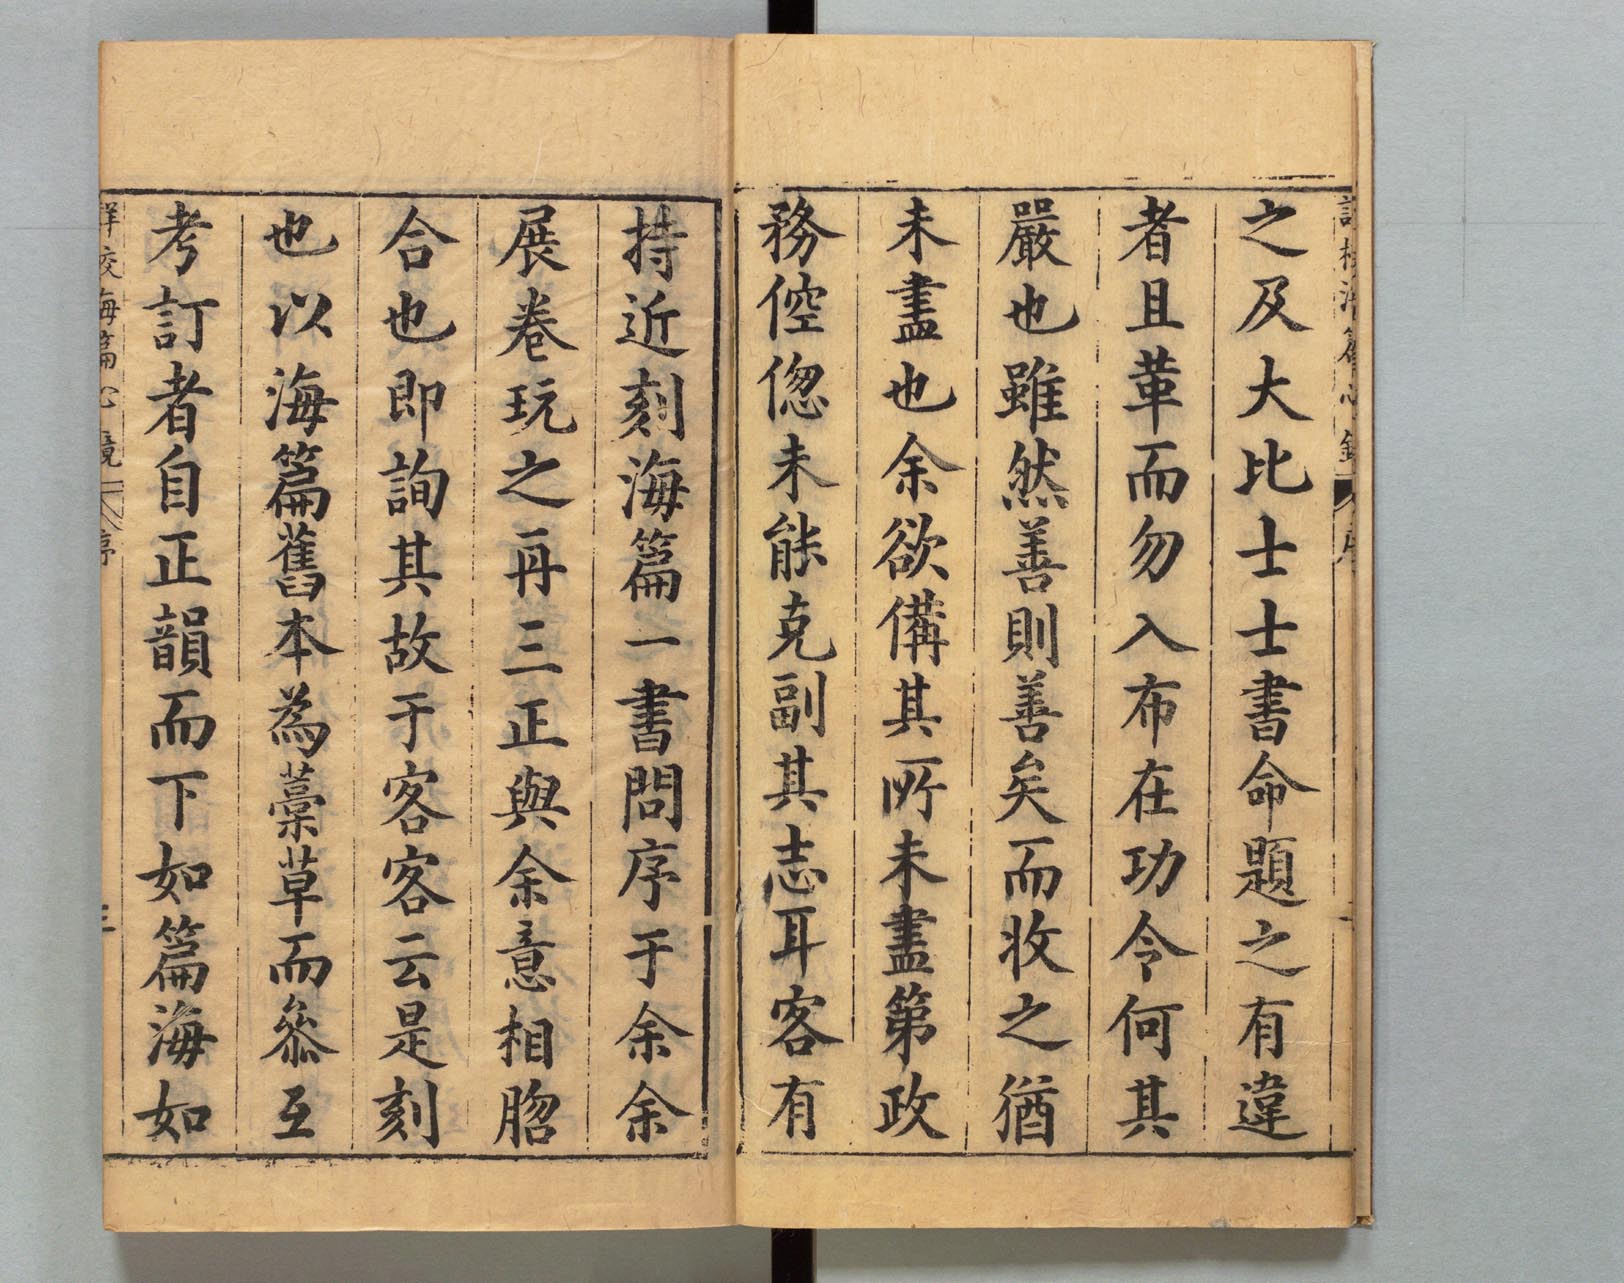 之及大比士士書命題之有違
者且革而勿入布在功令何其
嚴也雖然善則善矣而收之猶
未盡也余欲備其所未盡第政
務倥偬未能克副其志耳客有
持近刻海篇一書問序于余余
展卷玩之再三正與余意相脗
合也即詢其故于客客云是刻
也以海篇舊本為藁草而叅互
考訂者自正韻而下如篇海如
詳校海篇心鏡 序